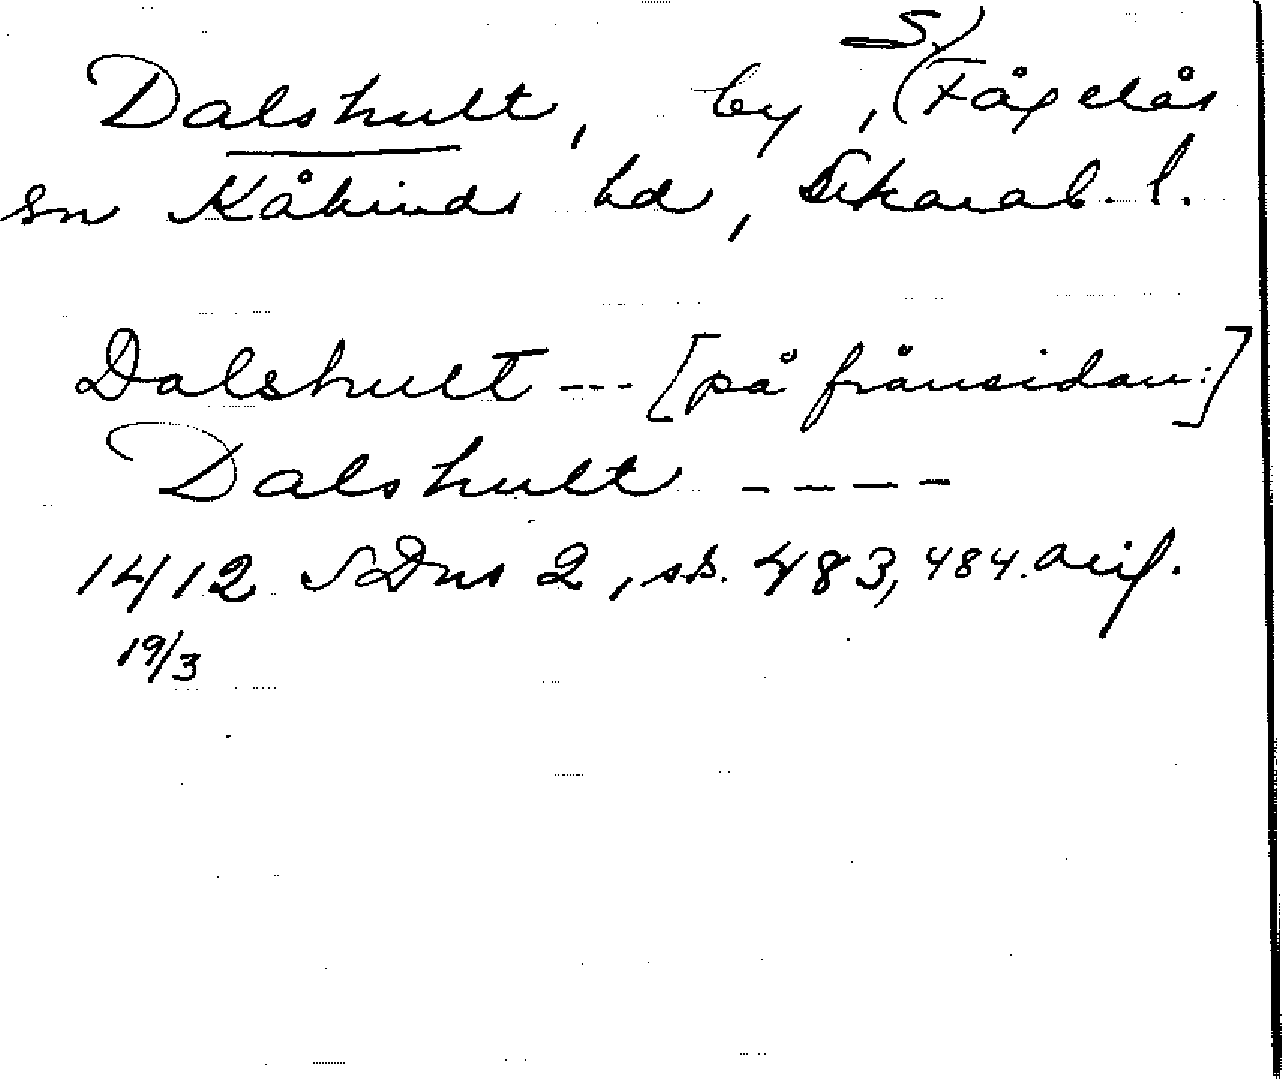 Dalshult, by, S. Fågelås
sn Kåkinds hd, Skarab. l.
Dalshult --- [på frånsidan:]
Dalshult ----
1412 SDns 2, ss. 483, 484. avif.
19/3